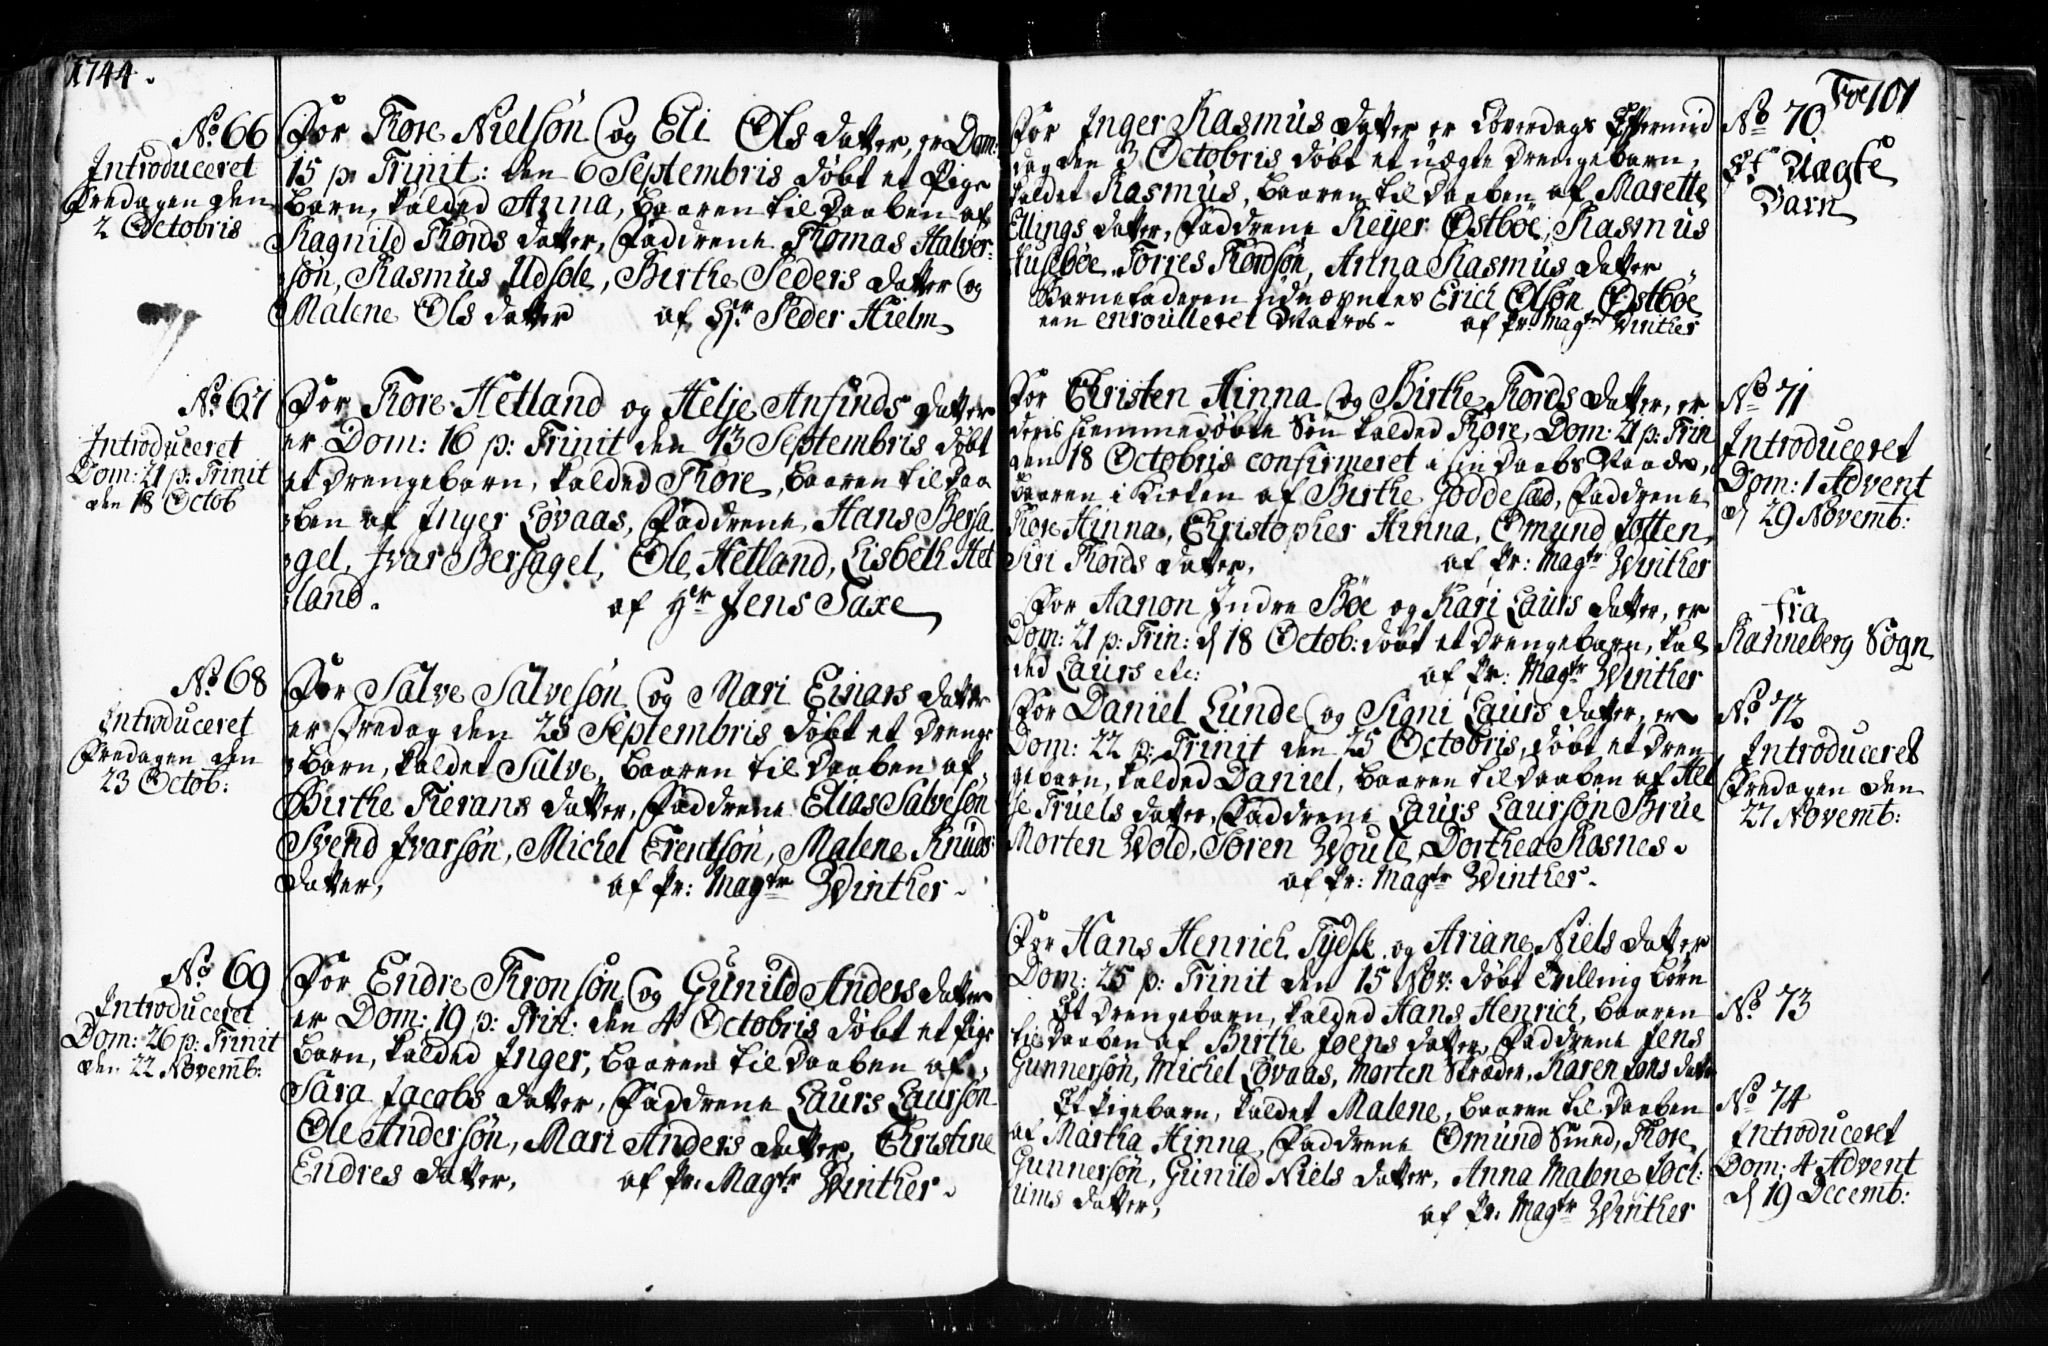 1744.
No. 66
Introduceret
Fredagen den
2 Octobris
For Tore Nielsøn og Eli Ols datter, er Dom:
15 p: Trinit: den 6 Septembris døbt et Pige
barn, kalded Anna, baaren til daaben af
Ragnild Tords datter, Faddrene Tomas Halver-
søn, Rasmus Udsole, Birthe Peders datter og
Malene Ols datter af Hr Peder Hielm
No. 67
Introduceret
Dom: 21 p: Trinit
den 18 Octob
For Tore Hetland og Helje Anfinds datter
er Dom: 16 p: Trinit den 13 Septembris døbt
et drengebarn, kalded Tore, baaren til daa
ben af Inger Løvaas, Faddrene, Hans Bersa
gel, Ivar Bersagel, Ole Hetland, Lisbeth Het
land. af Hr Jens Saxe
No. 68
Introduceret
Fredagen den
23 Octob:
For Salve Salvesøn og Mari Einars datter
er Fredag den 25 Septembris døbt et drenge
barn, kaldet Salve, baaren til daaben af
Birthe Tierans datter, Faddrene Elias Salvesøn
Svend Ivarsøn, Michel Erentsøn, Malene Knuds
datter, af Pr: Magtr Winther
No. 69
Introduceret
Dom: 26 p: Trinit
den 22 Novemb:
For Endre Tronsøn og Gunild Anders datter
er Dom: 19 p: Trin: den 4 Octobris døbt et Pige
barn, kalded Inger, baaren til daaben af
Sara Jacobs datter, Faddrene Laurs Laursøn
Ole Andersøn, Mari Anders datter, Christine
Endres datter, af Pr: Magtr Winther
101
For Inger Rasmus datter er Løverdags Eftermid
dag den 3 Octobris døbt et uægte drengebarn,
kaldet Rasmus, baaren til daaben af Marette
Ellings datter, Faddrene Reyer Østbøe, Rasmus
Husebøe, Torres Tordsøn, Anna Rasmus datter
Barnefaderen udnæpntes Erich Olsøn Østbøe
een enroulleret Matros af Pr: Magtr Winther
No 70
Et Uægte
Barn
For Christen Hinna og Birthe Tords datter, er
deris hiemmedøbte Søn kalded Tore, Dom: 21 p: Trin
den 18 Octobris confirmeret i sin daabs Naade,
baaren i Kirken af Birthe Joddesæd, Faddrene
Tore Hinna, Christopher Hinna, Omund Jotten,
Siri Tords datter, af Pr: Magtr Winther
No 71
Introduceret
Dom: 1 Advent
d 29 Novemb:
For Aanon Indre Bøe og Kari Laurs datter, er
Dom: 21 p: Trin: d 18 Octob: døbt et drengebarn, kal
ded Laurs etc: af Pr: Magtr Winther
fra
Ranneberg Sogn
For Daniel Lunde og Signi Laurs datter, er
Dom: 22 p: Trinit den 25 Octobris, døbt et dren
gebarn, kalded Daniel, baaren til daaben af Hel
je Truels datter, Faddrene Laurs Laursøn Brue
Morten Wold, Søren Woule, Dorthea Rosnes
af Pr: Magtr Winther
No 72
Introduceret
Fredagen den
27 Novemb:
For Hans Henrich Tydsk og Ariane Niels datter
Dom: 25 p: Trinit den 15 Nov: døbt Tvilling børn
Et drengebarn, kalded Hans Henrich, baaren
til daaben af Birthe Joens datter, Faddrene Jens
Gunnersøn, Michel Løvaas, Morten Skræder, Karen Jons datter
No 73
Et Pigebarn, kaldet Malene, baaren til daaben
af Martha Hinna, Faddrene Omund Smed, Tore
Gunnersøn, Gunild Niels datter, Anna Malene Joch:
iums datter, af Pr: Magtr Winther
No 74
Introduceret
Dom: 4 Advent
d 19 Decemb: